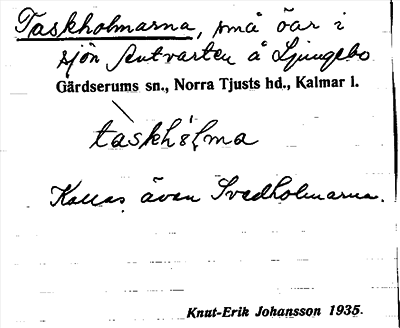 Taskholmarna, små öar i
sjön Antvarten å Ljungsbo
Gärdserums sn., Norra Tjusts hd., Kalmar l.
taskhòlma
Kallas även Svedholmarna.
Knut-Erik Johansson 1935.